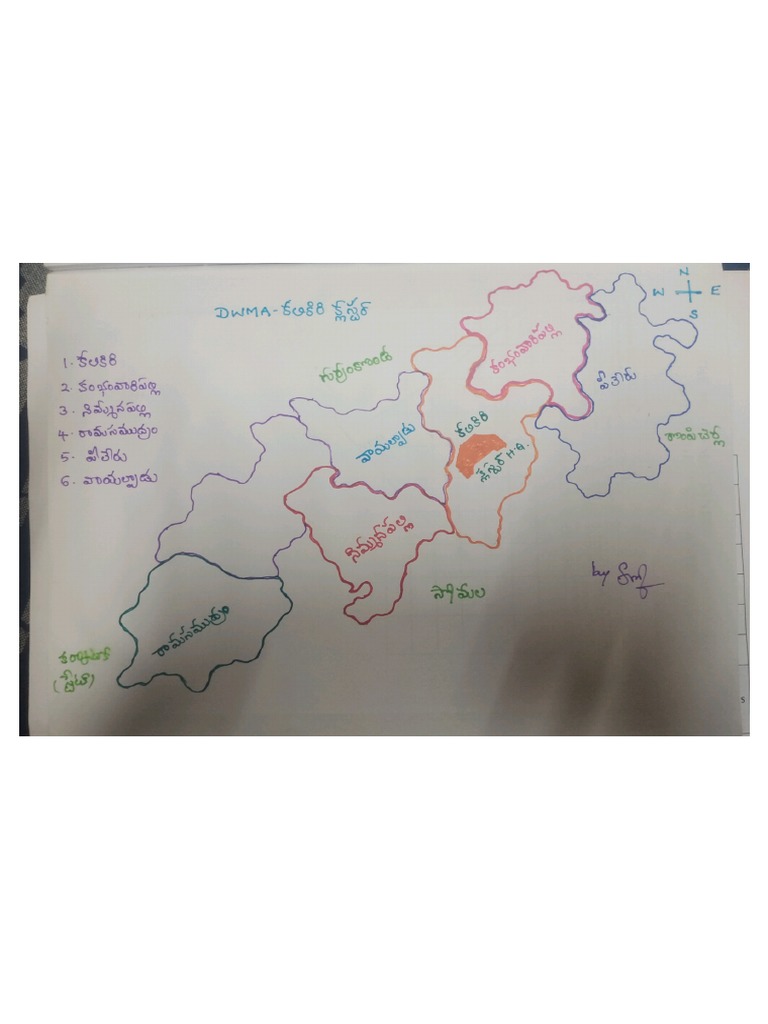 DWMA - కలికిరి క్లస్టర్
N
W E
S
1. కలికిరి
2. కంభంవారిపల్లి
3. నిమ్మనపల్లి
4. రామసముద్రం
5. పీలేరు
6. వాయల్పాడు
గుర్రంకొండ
కంభంవారిపల్లి
పీలేరు
కలికిరి
క్లస్టర్ H.Q.
వాయల్పాడు
రొంపిచెర్ల
నిమ్మనపల్లి
సోమల
రామసముద్రం
కర్ణాటక
(స్టేట్)
by
S